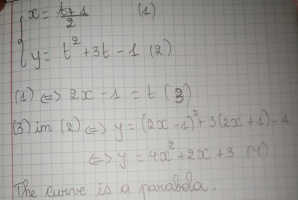 x = t+1/2 (1)
y = t² + 3t - 1 (2)
(1) <=> 2x - 1 = t (3)
(3) in (2) <=> y = (2x - 1)² + 3(2x + 1) - 1
<=> y = 4x² + 2x + 3 (4)
The curve is a parabola.